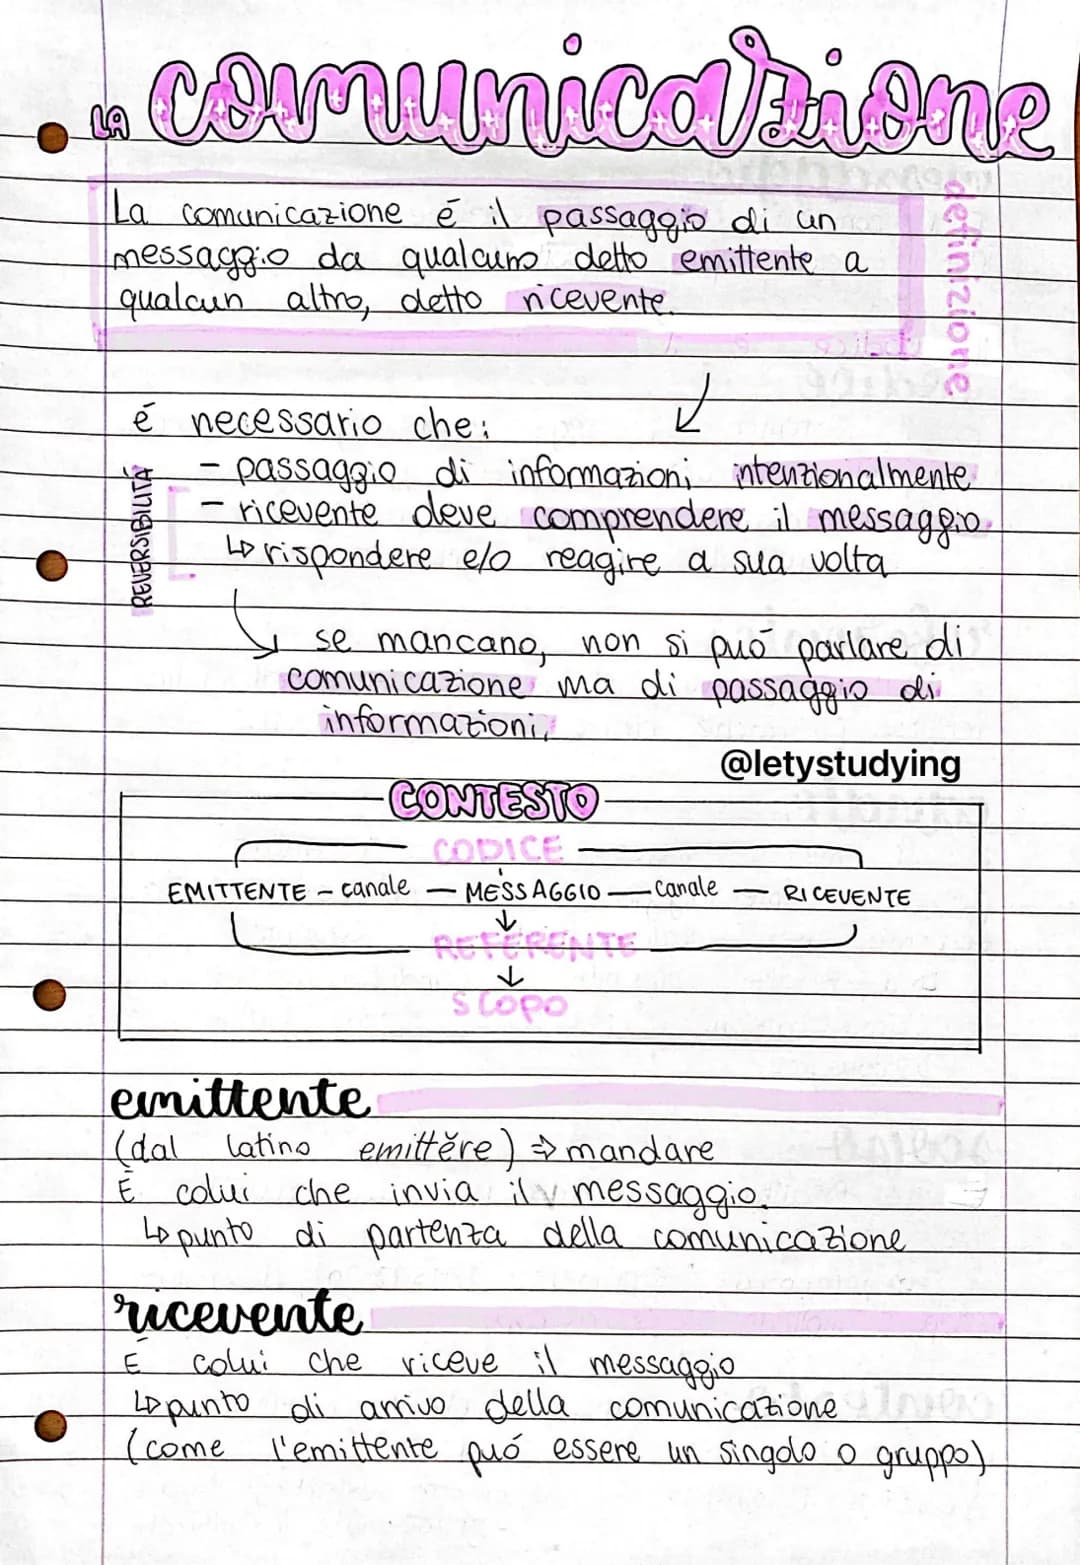 LA comunicazione
La comunicazione é il passaggio di un
messaggio da qualcuno detto emittente a
qualcun altro, detto ricevente.
definizione
é necessario che:
- passaggio di informazioni intenzionalmente
- ricevente deve comprendere il messaggio.
↳ rispondere e/o reagire a sua volta
REVERSIBILITÀ
se mancano, non si puó parlare di
comunicazione ma di passaggio di
informazioni.
@letystudying
CONTESTO
CODICE
EMITTENTE - canale - MESSAGGIO - canale - RICEVENTE
↓
REFERENTE
↓
SCOPO
emittente
(dal latino emittĕre) ⇒ mandare
É colui che invia il messaggio.
↳ punto di partenza della comunicazione
ricevente
É colui che riceve il messaggio
↳ punto di arrivo della comunicazione
(come l'emittente puó essere un singolo o gruppo)